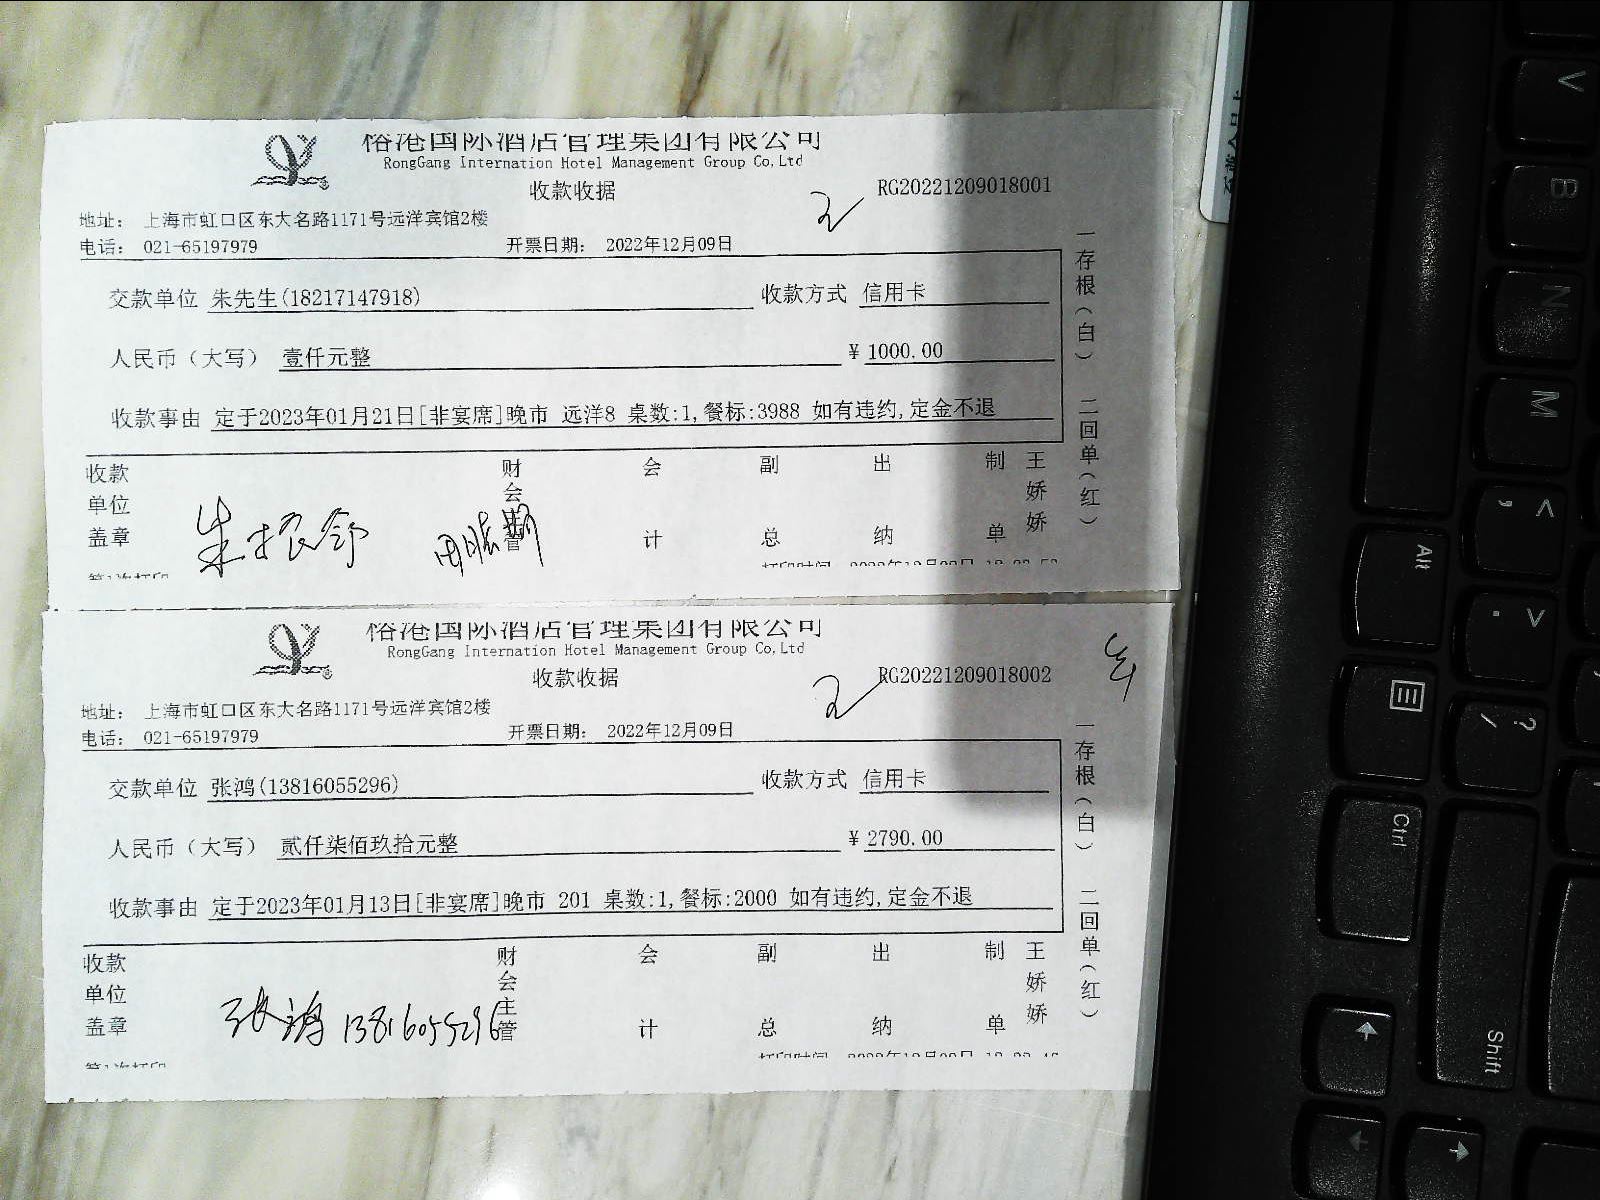 裕港国际酒店管理集团有限公司
RongGang Internation Hotel Management Group Co,Ltd
收款收据
RG20221209018001
地址: 上海市虹口区东大名路1171号远洋宾馆2楼
电话: 021-65197979 开票日期: 2022年12月09日
交款单位 朱先生(18217147918) 收款方式 信用卡
人民币(大写) 壹仟元整 ¥ 1000.00
收款事由 定于2023年01月21日[非宴席]晚市 远洋8 桌数:1,餐标:3988 如有违约,定金不退
收款单位盖章 财会主管 会计 副总 出纳 制单 王娇娇
第1次打印
一存根(白) 二回单(红)
裕港国际酒店管理集团有限公司
RongGang Internation Hotel Management Group Co,Ltd
收款收据
RG20221209018002
地址: 上海市虹口区东大名路1171号远洋宾馆2楼
电话: 021-65197979 开票日期: 2022年12月09日
交款单位 张鸿(13816055296) 收款方式 信用卡
人民币(大写) 贰仟柒佰玖拾元整 ¥ 2790.00
收款事由 定于2023年01月13日[非宴席]晚市 201 桌数:1,餐标:2000 如有违约,定金不退
收款单位盖章 财会主管 会计 副总 出纳 制单 王娇娇
张鸿 13816055296
第1次打印
一存根(白) 二回单(红)
V
B
N
M
<
,
>
.
?
/
Alt
Ctrl
Shift